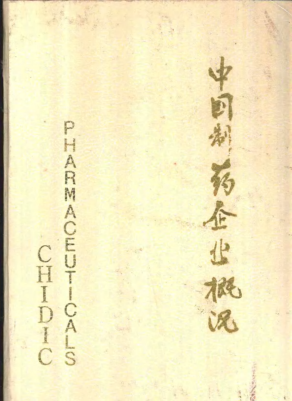 中国制药企业概况
PHARMACEUTICALS
CHIDIC